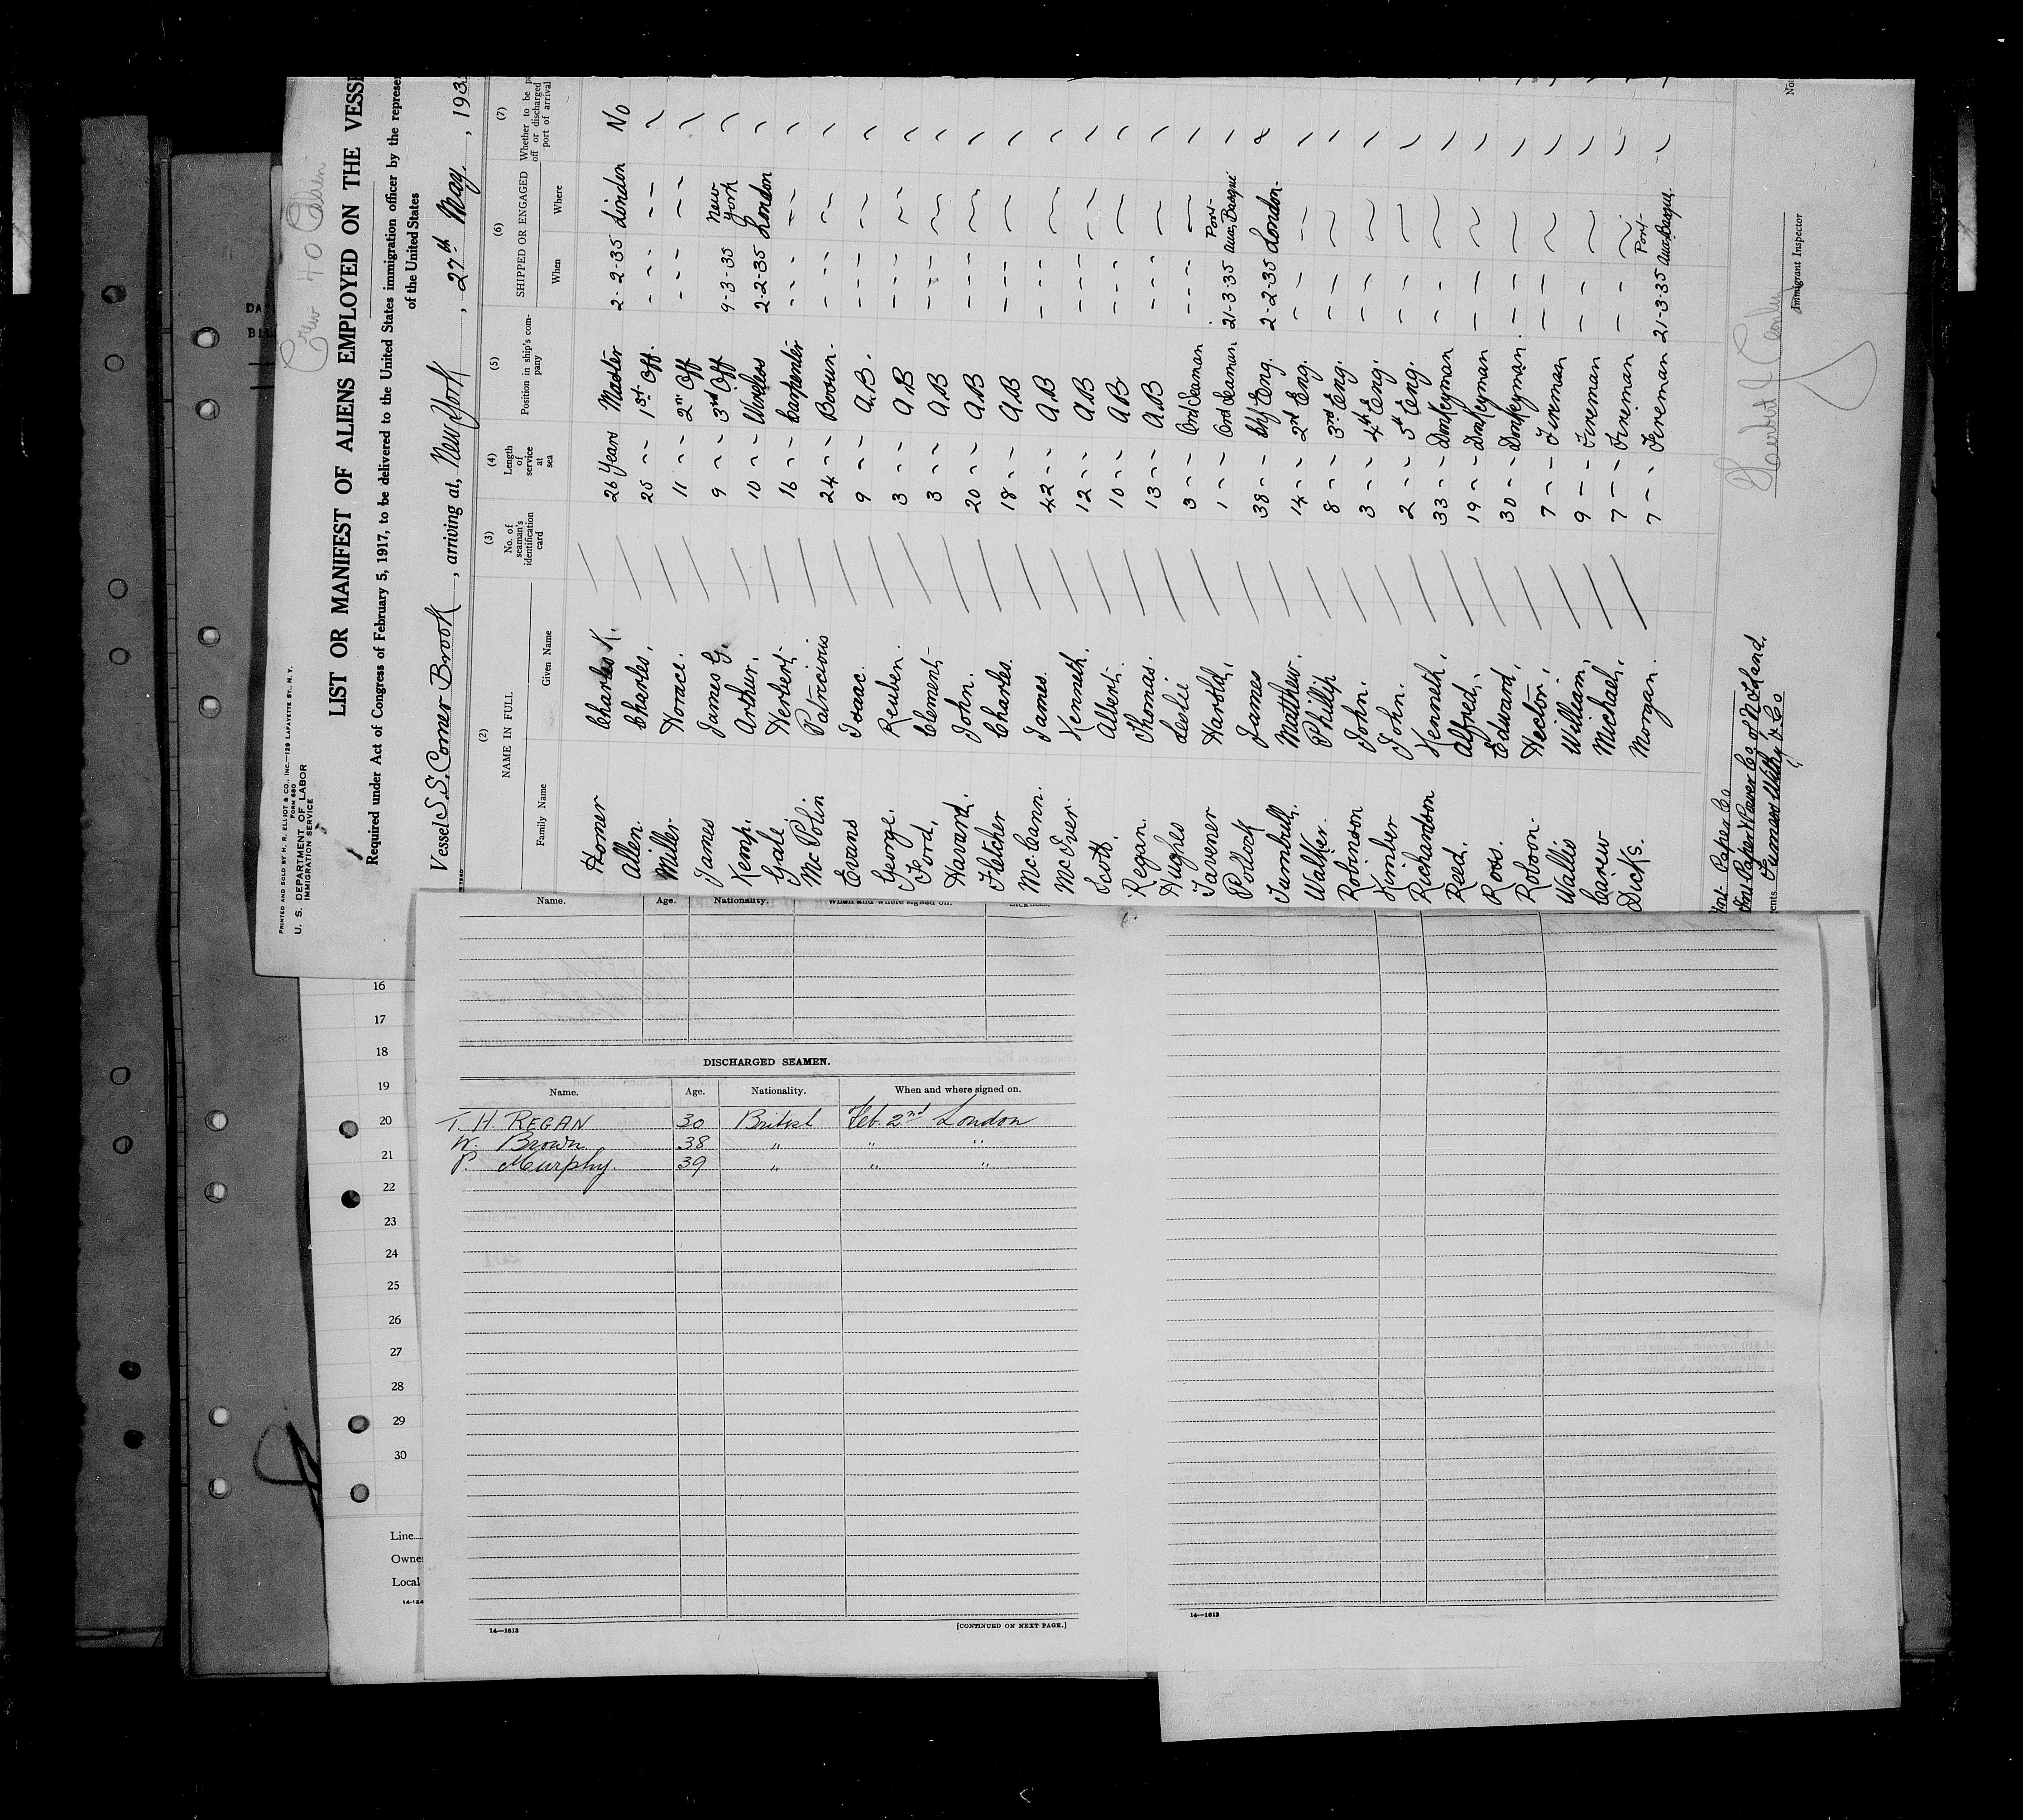 Crew 40
PRINTED AND SOLD BY H. R. ELLIOT & CO., INC.—129 LAFAYETTE ST., N. Y.
FORM 680
U. S. DEPARTMENT OF LABOR
IMMIGRATION SERVICE
LIST OR MANIFEST OF ALIENS EMPLOYED ON THE VESSE
Required under Act of Congress of February 5, 1917, to be delivered to the United States immigration officer by the represe
of the United States
Vessel S.S. Corner Brook, arriving at, New York, 27th May, 193
(2) (3) (4) (5) (6) (7)
NAME IN FULL
No. of seaman's identification card
Length of service at sea
Position in ship's company
SHIPPED OR ENGAGED
Whether to be p
off or discharged
port of arrival
Family Name Given Name When Where
Homer Charles K. 26 Years Master 2-2-35 London No
Allen. Charles. 25 ~ ~ 1st Off. - - - - -
Miller Horace. 11 ~ ~ 2nd Off - - - - -
James James G. 9 ~ ~ 3rd Off 9-3-35 New York
Kemp. Arthur. 10 ~ ~ Wireless 2-2-35 London
Gale. Herbert 16 ~ ~ Carpenter - - - - -
Mc Polin Patricious 24 ~ ~ Bosun. - - - - -
Evans Isaac. 9 ~ ~ A.B. - - - - -
George. Reuben. 3 ~ ~ A.B - - - - -
Ford. Clement 3 ~ ~ A.B - - - ~
Havard. John. 20 ~ ~ A.B - - - ~
Fletcher Charles. 18 ~ ~ A.B - - - ~
Mc Cann. James. 42 ~ ~ A.B - - - ~
Mc Ever. Kenneth. 12 ~ ~ A.B - - - ~
Scott. Albert. 10 ~ ~ A.B - - - ~
Regan. Thomas. 13 ~ ~ A.B - - - ~
Hughes Leslie 3 ~ ~ Ord Seaman - - - ~
Tavener Harold. 1 ~ ~ Ord Seaman 21-3-35 Port-Aux-Basque
Pollock James 38 ~ ~ Chf Eng. 2-2-35 London.
Turnbull. Matthew. 14 ~ ~ 2nd Eng. - - - -
Walker. Phillip 8 ~ ~ 3rd Eng. - - ~
Robinson John. 3 ~ ~ 4th Eng. - - ~
Kimber John. 2 ~ ~ 5th Eng. - - ~
Richardson Kenneth. 33 ~ ~ Donkeyman - - ~
Reed. Alfred. 19 ~ ~ Donkeyman - - ~
Ross. Edward. 30 ~ ~ Donkeyman. - - ~
Robson. Hector. 7 ~ ~ Fireman - - ~
Wallis William. 9 - - Fireman - - ~
Carew Michael. 7 - - Fireman - - ~
Dicks. Morgan. 7 - - Fireman 21-3-35 Port-Aux-Basque.
Int Paper Co
Int Paper & Power Co of N F Land.
gents. Furness Withy & Co
Immigrant Inspector
No
DA
BIL
16
17
18
19
20
21
22
23
24
25
26
27
28
29
30
Line
Owner
Local
Name. Age. Nationality. When and where signed on.
DISCHARGED SEAMEN.
Name. Age. Nationality. When and where signed on.
T. H. REGAN 30 British Feb. 2nd London
W. Brown 38 " " "
P. Murphy. 39 " " "
14—1613
[CONTINUED ON NEXT PAGE.]
14—1613